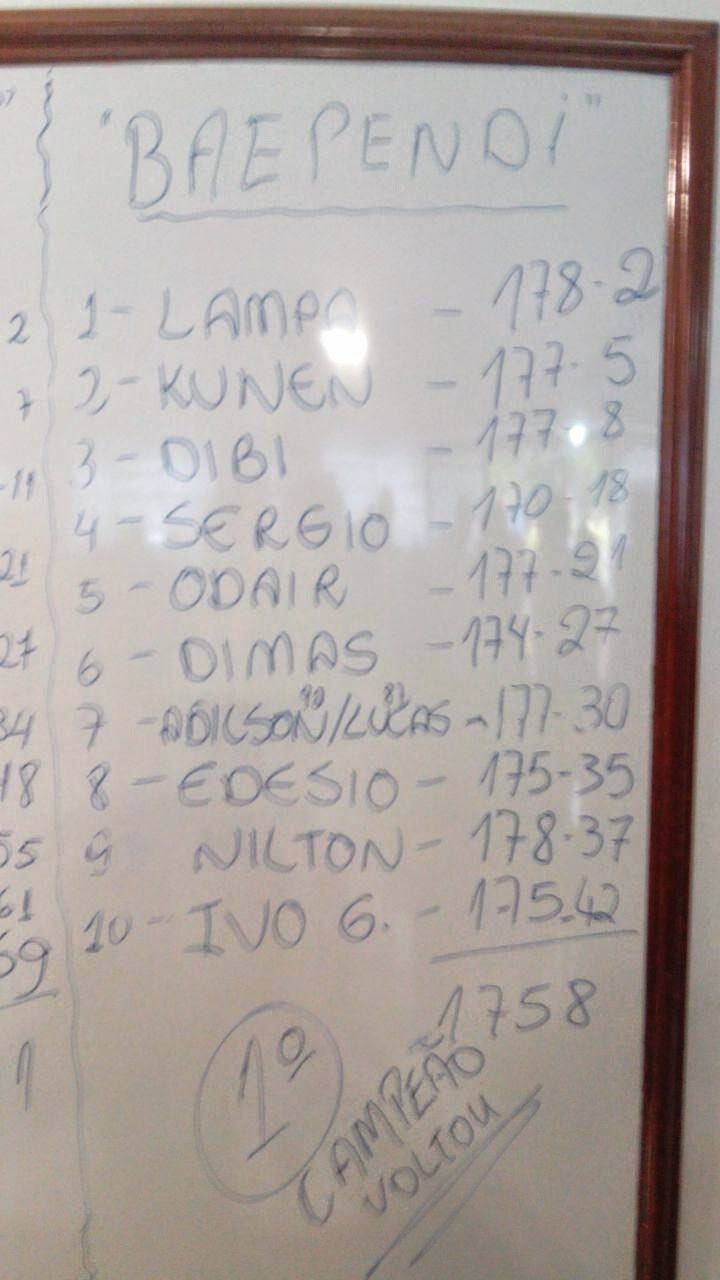 "BAEPENDi"
2 1- LAMPA - 178-2
7 2- KUNEN - 177-5
-11 3- DIBI - 177-8
4- SERGIO - 170-18
21 5- ODAIR - 177-21
27 6- DIMAS - 174-27
90 87
34 7- ADILSON/LUCAS - 177-30
8- EDESIO - 175-35
55 9 NILTON - 178-37
61 10- IVO G. - 175-42
69
1758
1
1º
CAMPEÃO
VOLTOU